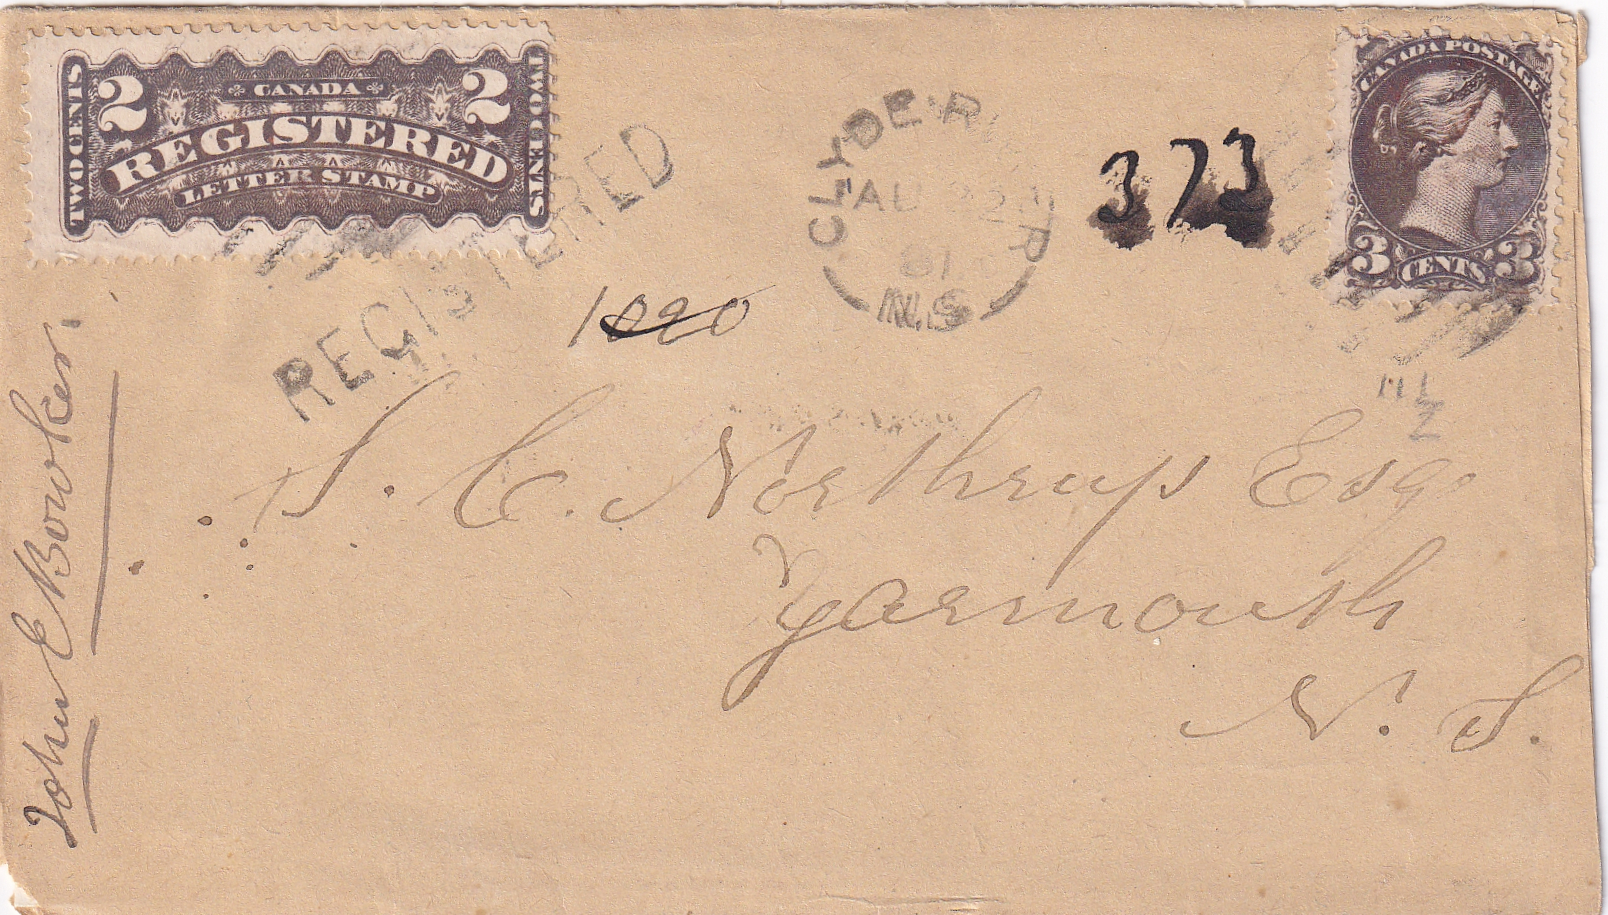 2 CANADA 2
TWO CENTS
REGISTERED
LETTER STAMP
TWO CENTS
REGISTERED
CLYDE RIVER
AU 22
81
N.S
373
CANADA POSTAGE
3 CENTS 3
1020
S. C. Northrup Esq.
Yarmouth
N. S.
John E Bowker